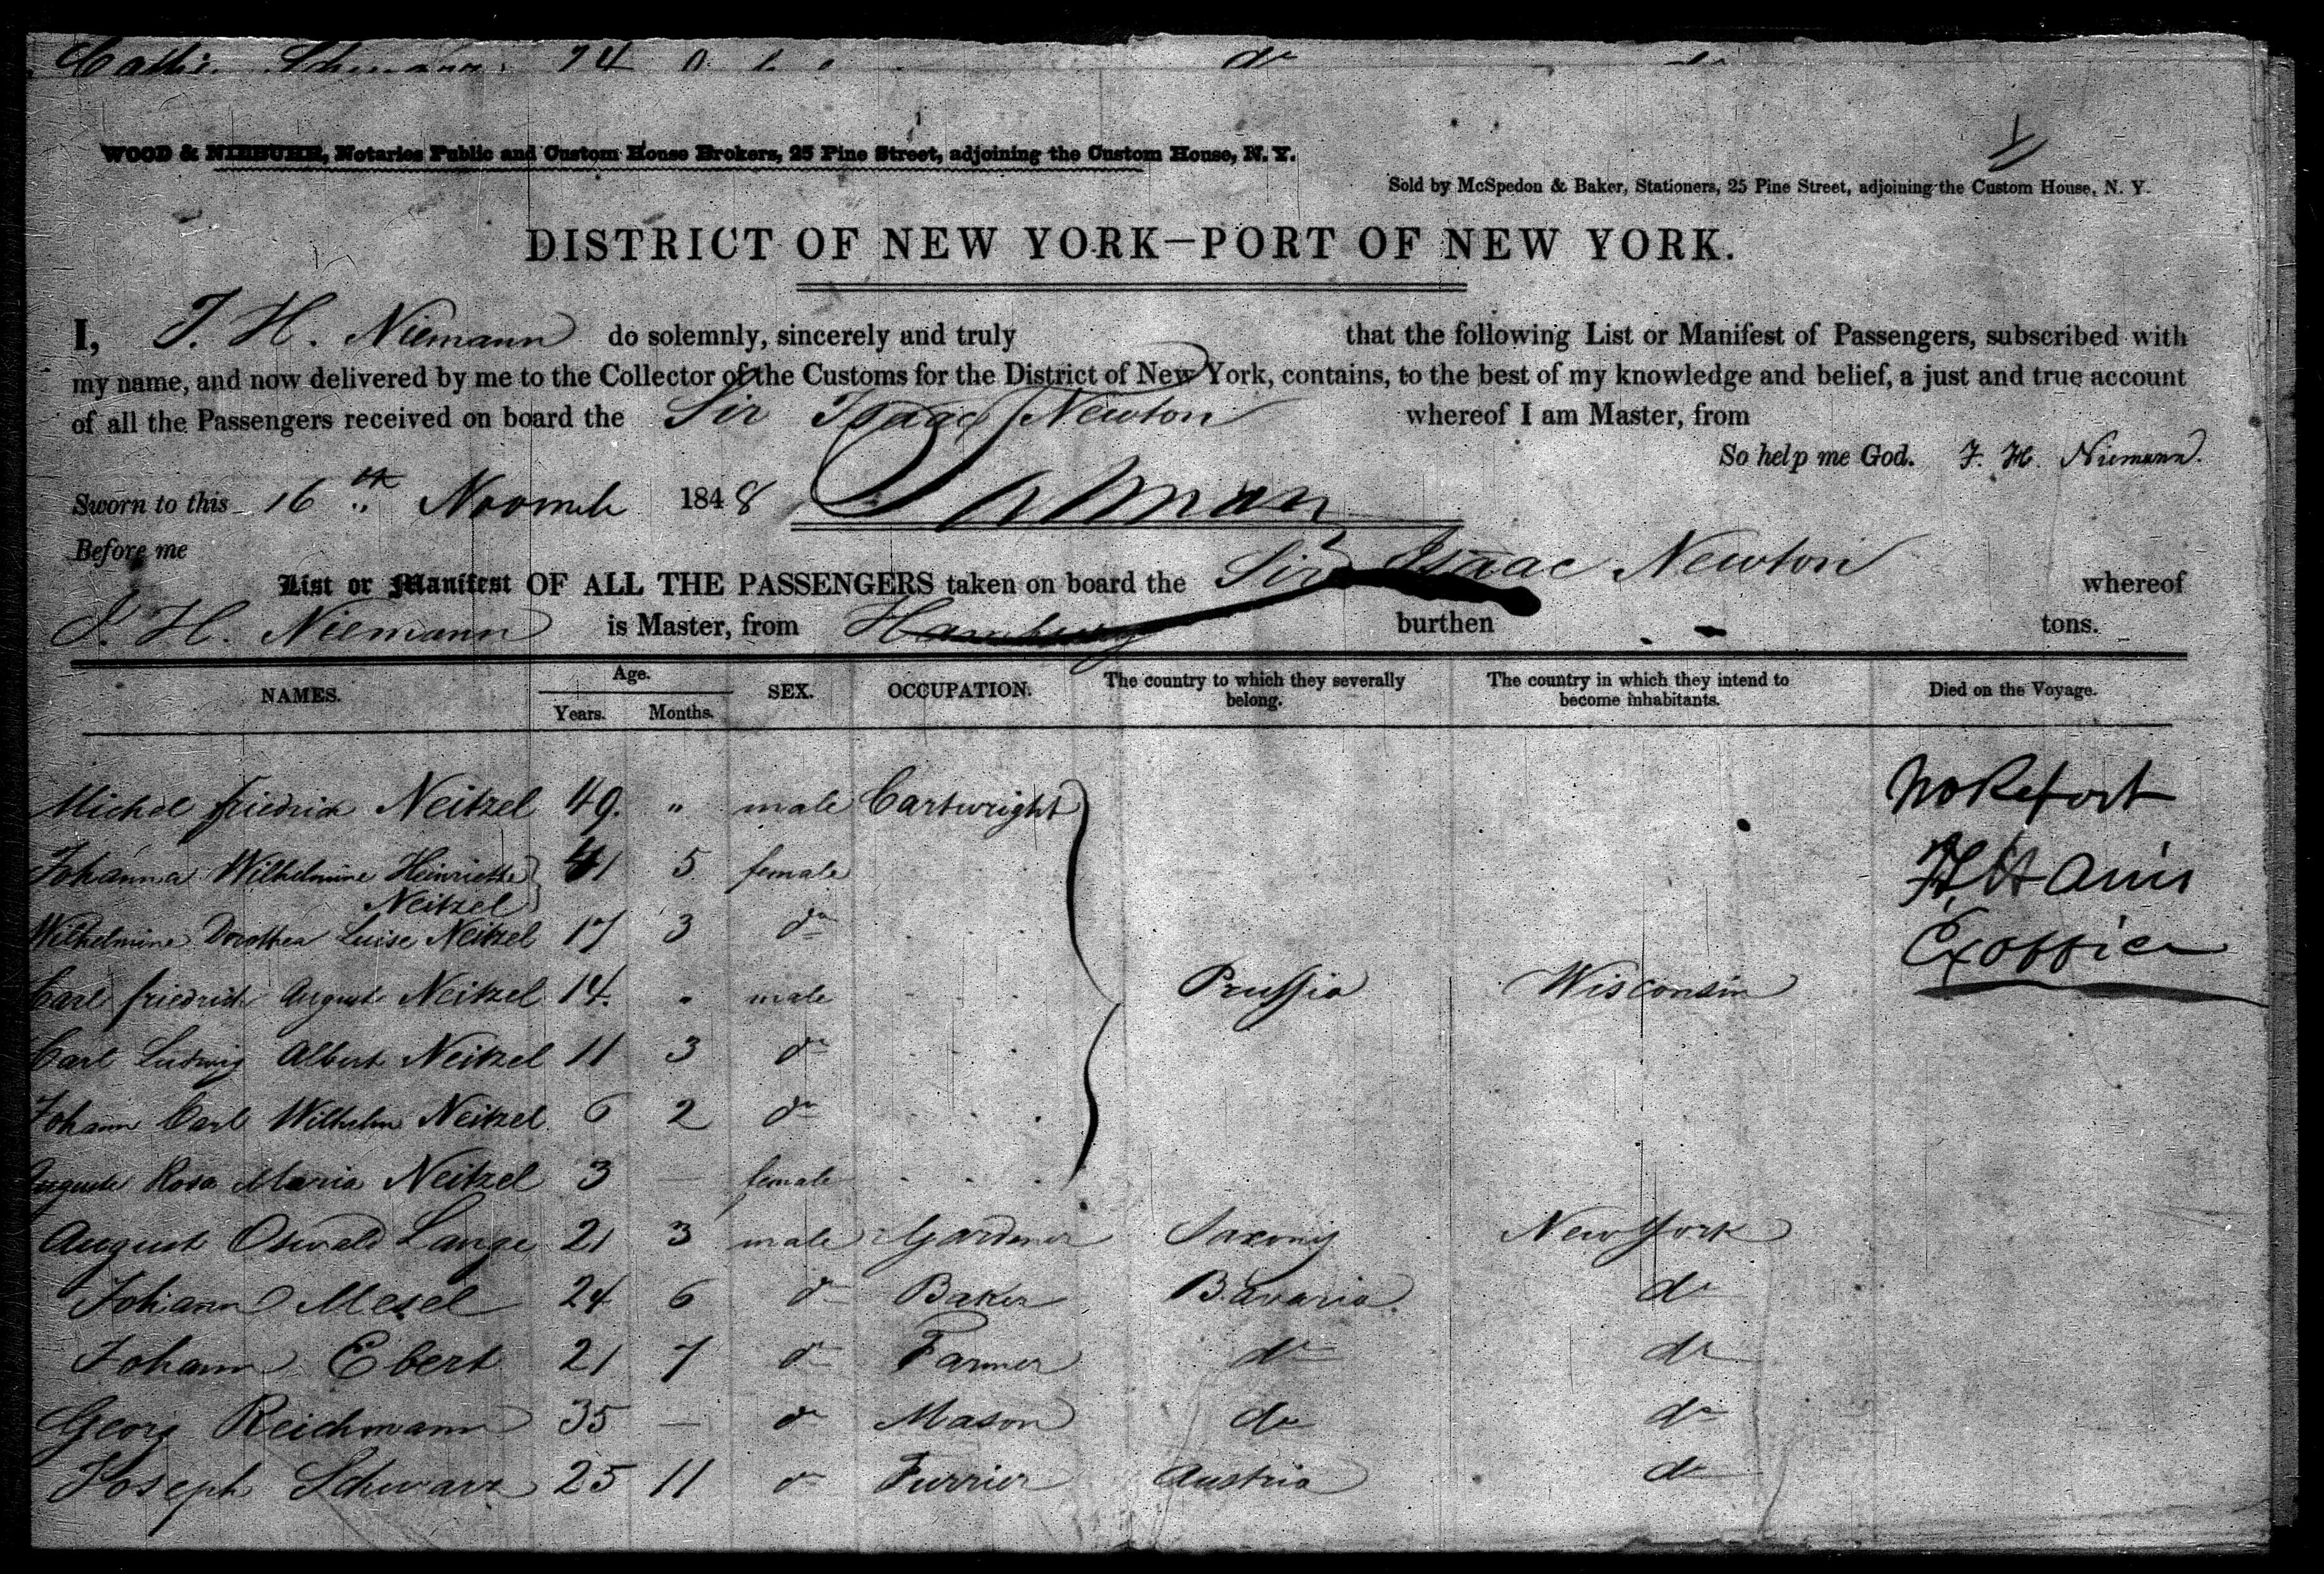 24 do
WOOD & NIEBUHR, Notaries Public and Custom House Brokers, 25 Pine Street, adjoining the Custom House, N. Y.
Sold by McSpedon & Baker, Stationers, 25 Pine Street, adjoining the Custom House, N. Y.
DISTRICT OF NEW YORK—PORT OF NEW YORK.
I, J. H. Niemann do solemnly, sincerely and truly that the following List or Manifest of Passengers, subscribed with
my name, and now delivered by me to the Collector of the Customs for the District of New York, contains, to the best of my knowledge and belief, a just and true account
of all the Passengers received on board the Sir Isaac Newton whereof I am Master, from
So help me God. J. H. Niemann.
Sworn to this 16th Novemb 1848
Before me
List or Manifest OF ALL THE PASSENGERS taken on board the Sir Isaac Newton whereof
J. H. Niemann is Master, from Hamburg burthen tons.
NAMES. Age. Years. Months. SEX. OCCUPATION. The country to which they severally belong. The country in which they intend to become inhabitants. Died on the Voyage.
Michel friedrich Neitzel 49. " male Cartwright
No Report
Johanna Wilhelmine Heinriette Neitzel 41 5 female
Wilhelmine Dorothea Luise Neitzel 17 3 do
Exoffice
Carl friedrich August Neitzel 14. " male Prussia Wisconsin
Carl Ludwig Albert Neitzel 11 3 do
Johann Carl Wilhelm Neitzel 6 2 do
Auguste Rosa Maria Neitzel 3 — female
August Oswald Lange 21 3 male Gardener Saxony New York
Johann Mesel 24 6 do Baker Bavaria. do
Johann Ebert 21 7 do Farmer do do
Georg Reichmann 35 — do Mason do do
Joseph Schwarz 25 11 do Furrier Austria do